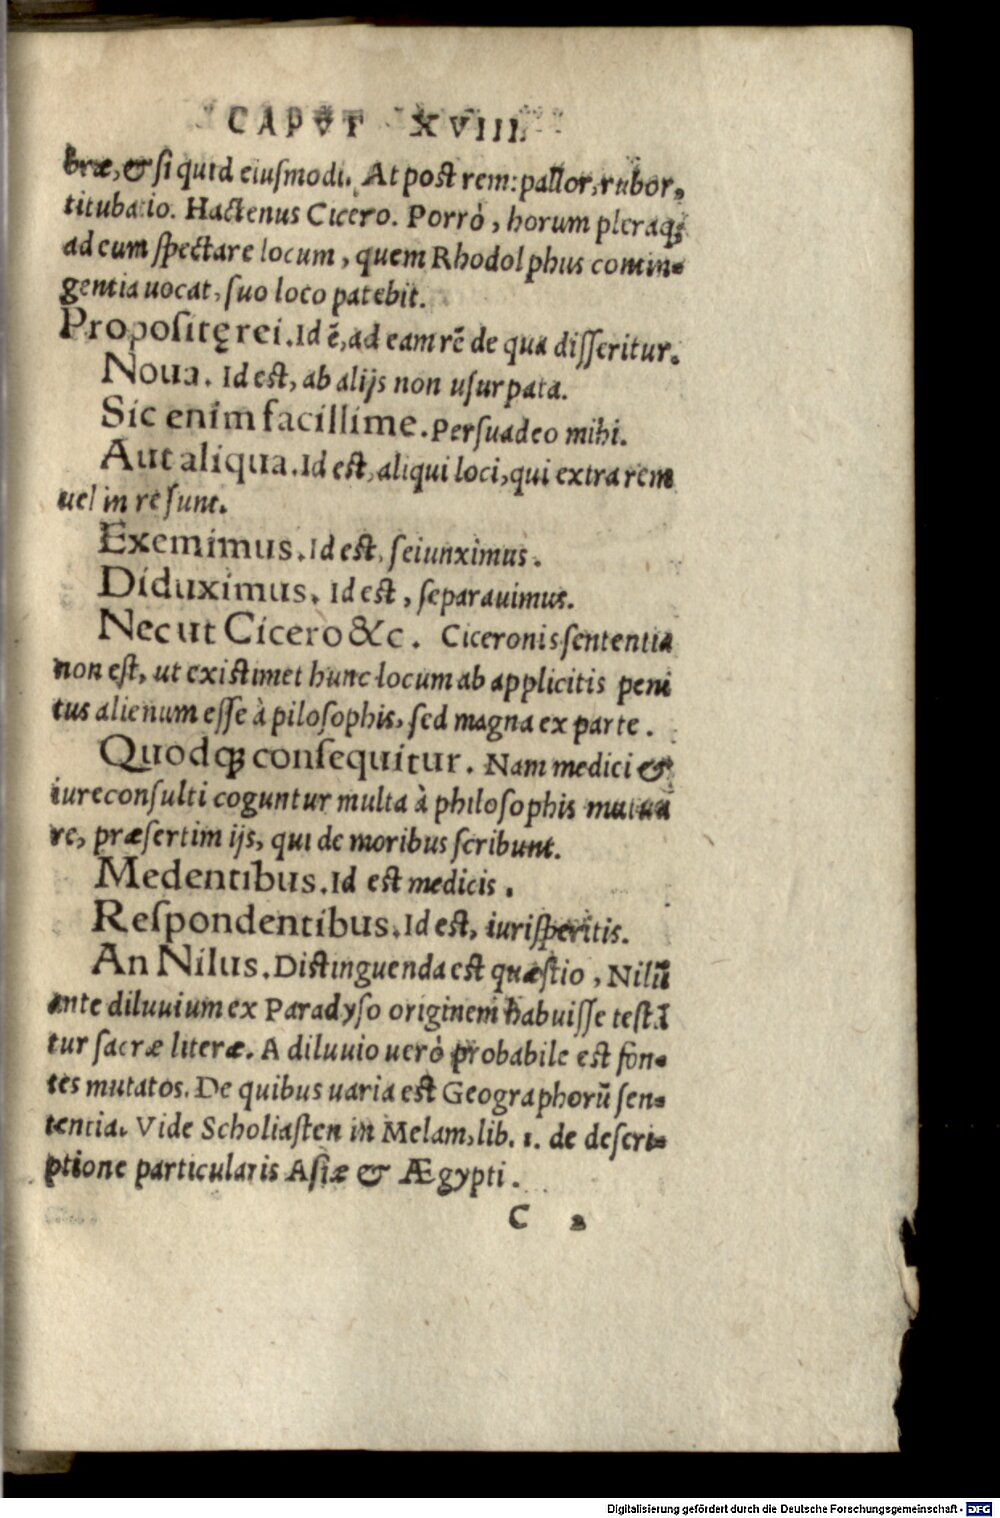 CAPVT XVIII.
bræ, & si quid eiuſmodi. At post rem: pallor, rubor,
titubatio. Hactenus Cicero. Porrò, horum pleraq;
ad eum ſpectare locum, quem Rhodolphus contin-
gentia uocat, ſuo loco patebit.
Propoſitę rei. Id ē, ad eam rē de qua diſſeritur.
Noua. Id est, ab alijs non uſurpata.
Sic enim facillime. Perſuadeo mihi.
Aut aliqua. Id est, aliqui loci, qui extra rem
uel in re ſunt.
Exemimus. Id est, ſeiunximus.
Diduximus. Id est, ſeparauimus.
Nec ut Cicero &c. Ciceronis ſententia
non eſt, ut existimet hunc locum ab applicitis peni
tus alienum eſſe à piloſophis, ſed magna ex parte.
Quodq; conſequitur. Nam medici &
iureconſulti coguntur multa à philoſophis mutua
re, præſertim ijs, qui de moribus ſcribunt.
Medentibus. Id est medicis.
Reſpondentibus. Id est, iuriſperitis.
An Nilus. Distinguenda est quæſtio, Nilū
ante diluuium ex Paradyſo originem habuiſſe testā
tur ſacræ literæ. A diluuio uerò probabile est fon-
tes mutatos. De quibus uaria est Geographorū ſen-
tentia. Vide Scholiaſten in Melam, lib. 1. de deſcri-
ptione particularis Aſiæ & Ægypti.
C 2
Digitalisierung gefördert durch die Deutsche Forschungsgemeinschaft - DFG